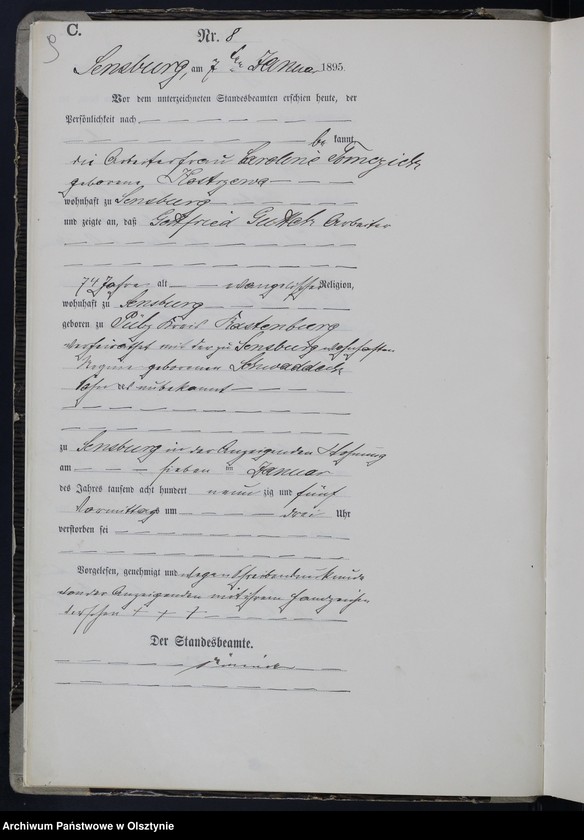 C.
9
Nr. 8
Sensburg, am 7 ten Januar 1895.
Vor dem unterzeichneten Standesbeamten erschien heute, der
Persönlichkeit nach
be kannt,
die Arbeiterfrau Caroline Tomczick
geborene Kostrzewa
wohnhaft zu Sensburg
und zeigte an, daß Gottfried Arbeiter
74 Jahre alt evangelischer Religion,
wohnhaft zu Sensburg
geboren zu Pülz Kreis Rastenburg
verheirathet mit der zu Sensburg wohnhaften
Regine geborenen
unbekannt
zu Sensburg in der Anzeigenden Wohnung
am sieben im Januar
des Jahres tausend acht hundert neun zig und fünf
Vormittags um drei Uhr
verstorben sei
Vorgelesen, genehmigt und wegen Schreibensunkunde
von der Anzeigenden mit ihrem Handzeichen
versehen + + +
Der Standesbeamte.
Archiwum Państwowe w Olsztynie